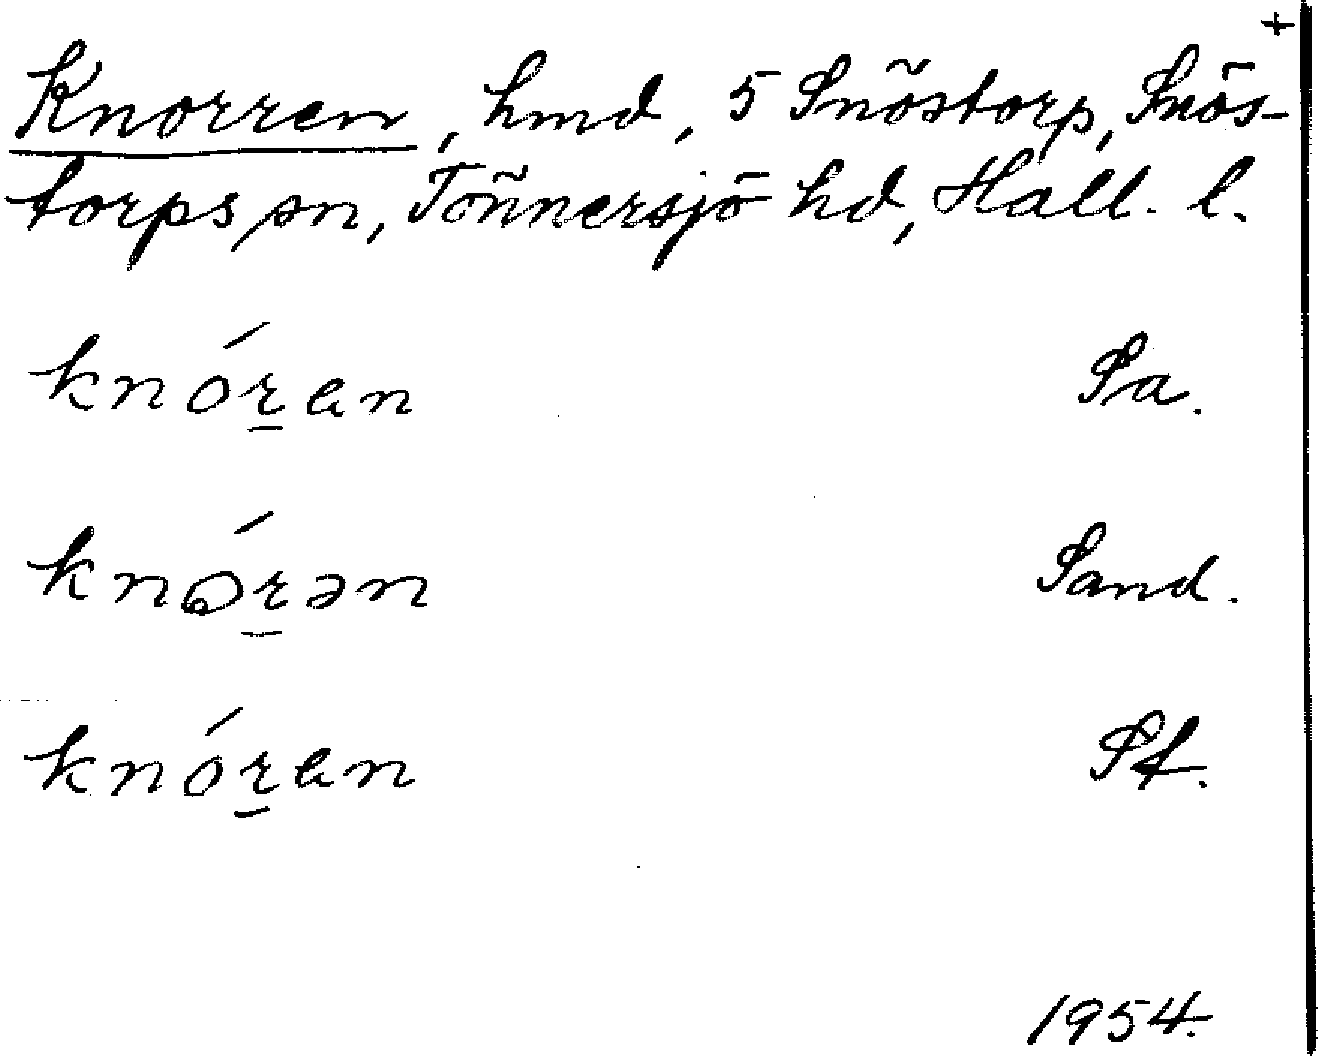 +
Knorren, hmd, 5 Snöstorp, Snös-
torps sn, Tönnersjö hd, Hall. l.
knór̲an Sa.
knór̲ən Sand.
knór̲an Sf.
1954.